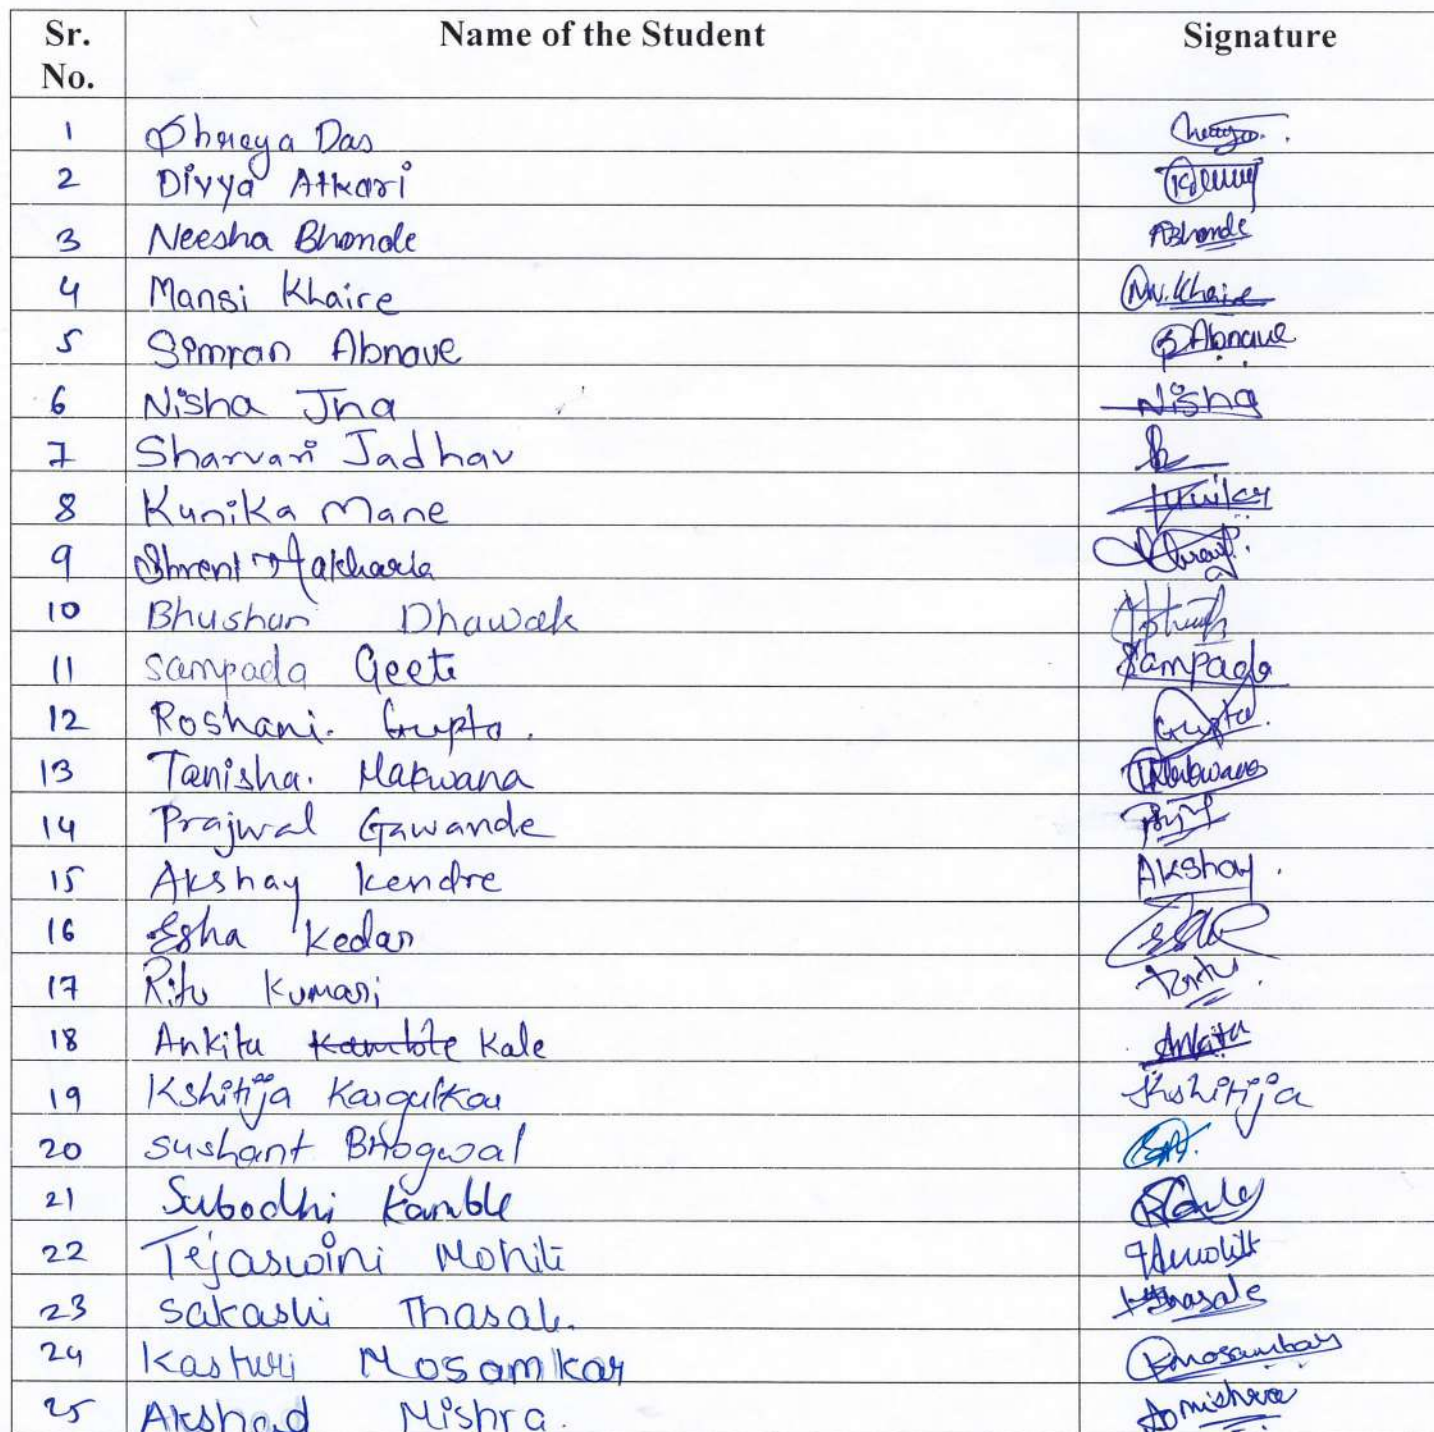 Sr. No. Name of the Student Signature
1 Shreya Das
2 Divya Atkari
3 Neesha Bhonde Bhonde
4 Mansi Khaire M.V.Khaire
5 Simran Abnave S Abnave
6 Nisha Jha Nisha
7 Sharvari Jadhav
8 Kunika Mane
9 Shreni
10 Bhushan Dhawak
11 Sampada Geete Sampada
12 Roshani. Gupta. Gupta.
13 Tanisha. Makwana Makwana
14 Prajwal Gawande
15 Akshay Kendre Akshay.
16 Esha Kedar
17 Ritu Kumari Ritu.
18 Ankita Kamble Kale Ankita
19 Kshitija Kargutkar Kshitija
20 Sushant Bhogwal
21 Subodhi Kamble
22 Tejaswini Mohite
23 Sakashi Thasale. Thasale
24 Kasturi Mosamkar
25 Akshad Mishra. Mishra